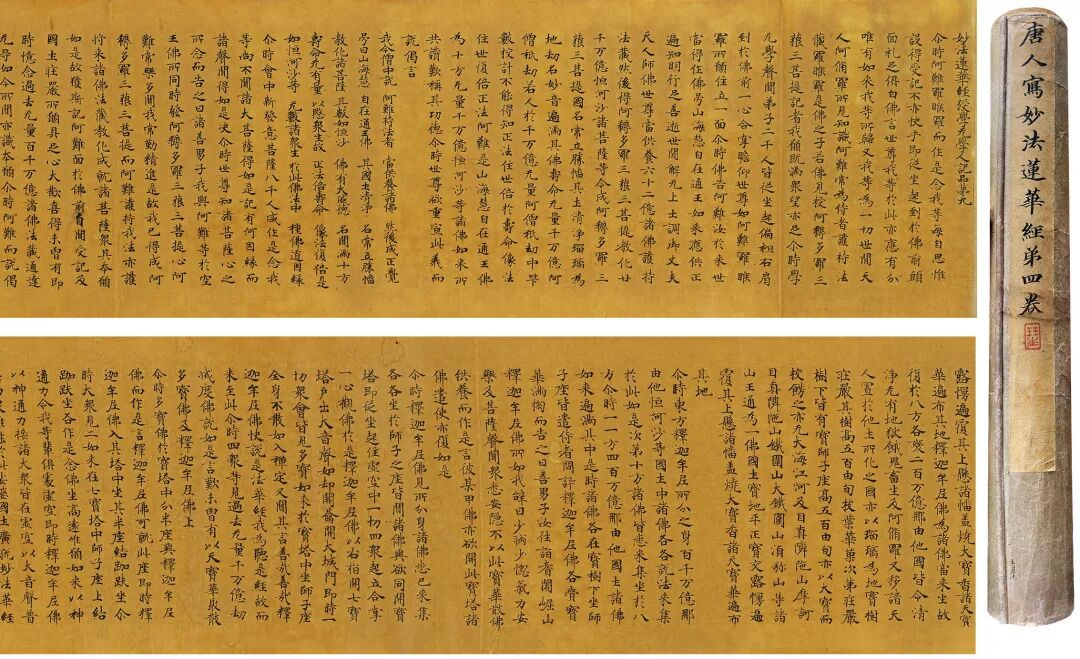 妙法蓮華經授學无學人記品第九
尒時阿難羅睺羅而作是念我等每自思惟
設得受記不亦快乎即從坐起到於佛前頭
面礼足俱白佛言世尊我等於此亦應有分
唯有如來我等所歸又我等為一切世間天
人阿脩羅所見知識阿難常為侍者護持法
藏羅睺羅是佛之子若佛見授阿耨多羅三
藐三菩提記者我願既滿衆望亦足尒時學
无學聲聞弟子二千人皆從坐起偏袒右肩
到於佛前一心合掌瞻仰世尊如阿難羅睺
羅所願住立一面尒時佛告阿難汝於來世
當得作佛号山海慧自在通王如來應供正
遍知明行足善逝世間解无上士調御丈夫
天人師佛世尊當供養六十二億諸佛護持
法藏然後得阿耨多羅三藐三菩提教化廿
千万億恒河沙諸菩薩等令成阿耨多羅三
藐三菩提國名常立勝幡其土清淨瑠璃為
地劫名妙音遍滿其佛壽命无量千万億阿
僧祇劫若人於千万億无量阿僧祇劫中筭
數挍計不能得知正法住世倍於壽命像法
住世復倍正法阿難是山海慧自在通王佛
為十方无量千万億恒河沙等諸佛如來所
共讚歎稱其功德尒時世尊欲重宣此義而
說偈言
我今僧中說 阿難持法者 當供養諸佛 然後成正覺
号曰山海慧 自在通王佛 其國土清淨 名常立勝幡
教化諸菩薩 其數如恒沙 佛有大威德 名聞滿十方
壽命无有量 以愍衆生故 正法倍壽命 像法復倍是
如恒河沙等 无數諸衆生 於此佛法中 種佛道因緣
尒時會中新發意菩薩八千人咸作是念我
等尚不聞諸大菩薩得如是記有何因緣而
諸聲聞得如是决尒時世尊知諸菩薩心之
所念而告之曰諸善男子我與阿難等於空
王佛所同時發阿耨多羅三藐三菩提心阿
難常樂多聞我常勤精進是故我已得成阿
耨多羅三藐三菩提而阿難護持我法亦護
將來諸佛法藏教化成就諸菩薩衆其本願
如是故獲斯記阿難面於佛前自聞受記及
國土莊嚴所願具足心大歡喜得未曾有即
時憶念過去无量百千万億諸佛法藏通達
无㝵如今所聞亦識本願尒時阿難而說偈
唐人寫妙法蓮華經第四卷
露幔遍覆其上懸諸幡蓋燒大寶香諸天寶
華遍布其地釋迦牟尼佛為諸佛當來坐故
復於八方各變二百万億那由他國皆令清
淨无有地獄餓鬼畜生及阿脩羅又移諸天
人置於他土所化之國亦以瑠璃為地寶樹
莊嚴其樹高五百由旬枝葉華菓次第莊嚴
樹下皆有寶師子座高五百由旬亦以大寶而
挍飾之亦无大海江河及目真隣陁山摩訶
目真隣陁山鐵圍山大鐵圍山湏弥山等諸
山王通為一佛國土寶地平正寶交露幔遍
覆其上懸諸幡蓋燒大寶香諸天寶華遍布
其地
尒時東方釋迦牟尼所分之身百千万億那
由他恒河沙等國土中諸佛各各說法來集
於此如是次第十方諸佛皆悉來集坐於八
方尒時一一方四百万億那由他國土諸佛
如來遍滿其中是時諸佛各在寶樹下坐師
子座皆遣侍者問訊釋迦牟尼佛各齎寶
華滿掬而告之曰善男子汝往詣耆闍崛山
釋迦牟尼佛所如我辭曰少病少惱氣力安
樂及菩薩聲聞衆悉安隱不以此寶華散佛
供養而作是言彼某甲佛與欲開此寶塔諸
佛遣使亦復如是
尒時釋迦牟尼佛見所分身諸佛悉已來集
各各坐於師子之座皆聞諸佛與欲同開寶
塔即從坐起住虛空中一切四衆起立合掌
一心觀佛於是釋迦牟尼佛以右指開七寶
塔戶出大音聲如却關鑰開大城門即時一
切衆會皆見多寶如來於寶塔中坐師子座
全身不散如入禪定又聞其言善哉善哉釋
迦牟尼佛快說是法華經我為聽是經故而
來至此尒時四衆等見過去无量千万億劫
滅度佛說如是言歎未曾有以天寶華聚散
多寶佛及釋迦牟尼佛上
尒時多寶佛於寶塔中分半座與釋迦牟尼
佛而作是言釋迦牟尼佛可就此座即時釋
迦牟尼佛入其塔中坐其半座結跏趺坐尒
時大衆見二如來在七寶塔中師子座上結
跏趺坐各作是念佛坐高遠唯願如來以神
通力令我等輩俱處虛空即時釋迦牟尼佛
以神通力接諸大衆皆在虛空以大音聲普